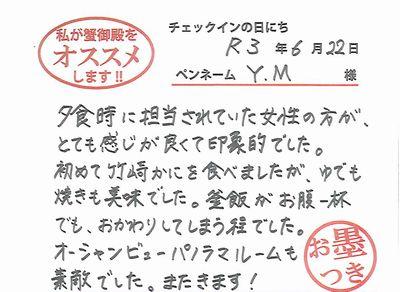 私が蟹御殿を
オススメ
します!!
チェックインの日にち
R3 年 6 月 22 日
ペンネーム Y.M 様
夕食時に担当されていた女性の方が、
とても感じが良くて印象的でした。
初めて竹崎かにを食べましたが、ゆでも
焼きも美味でした。釜飯がお腹一杯
でも、おかわりしてしまう程でした。
オーシャンビューパノラマルームも
素敵でした。またきます!
お墨
つき